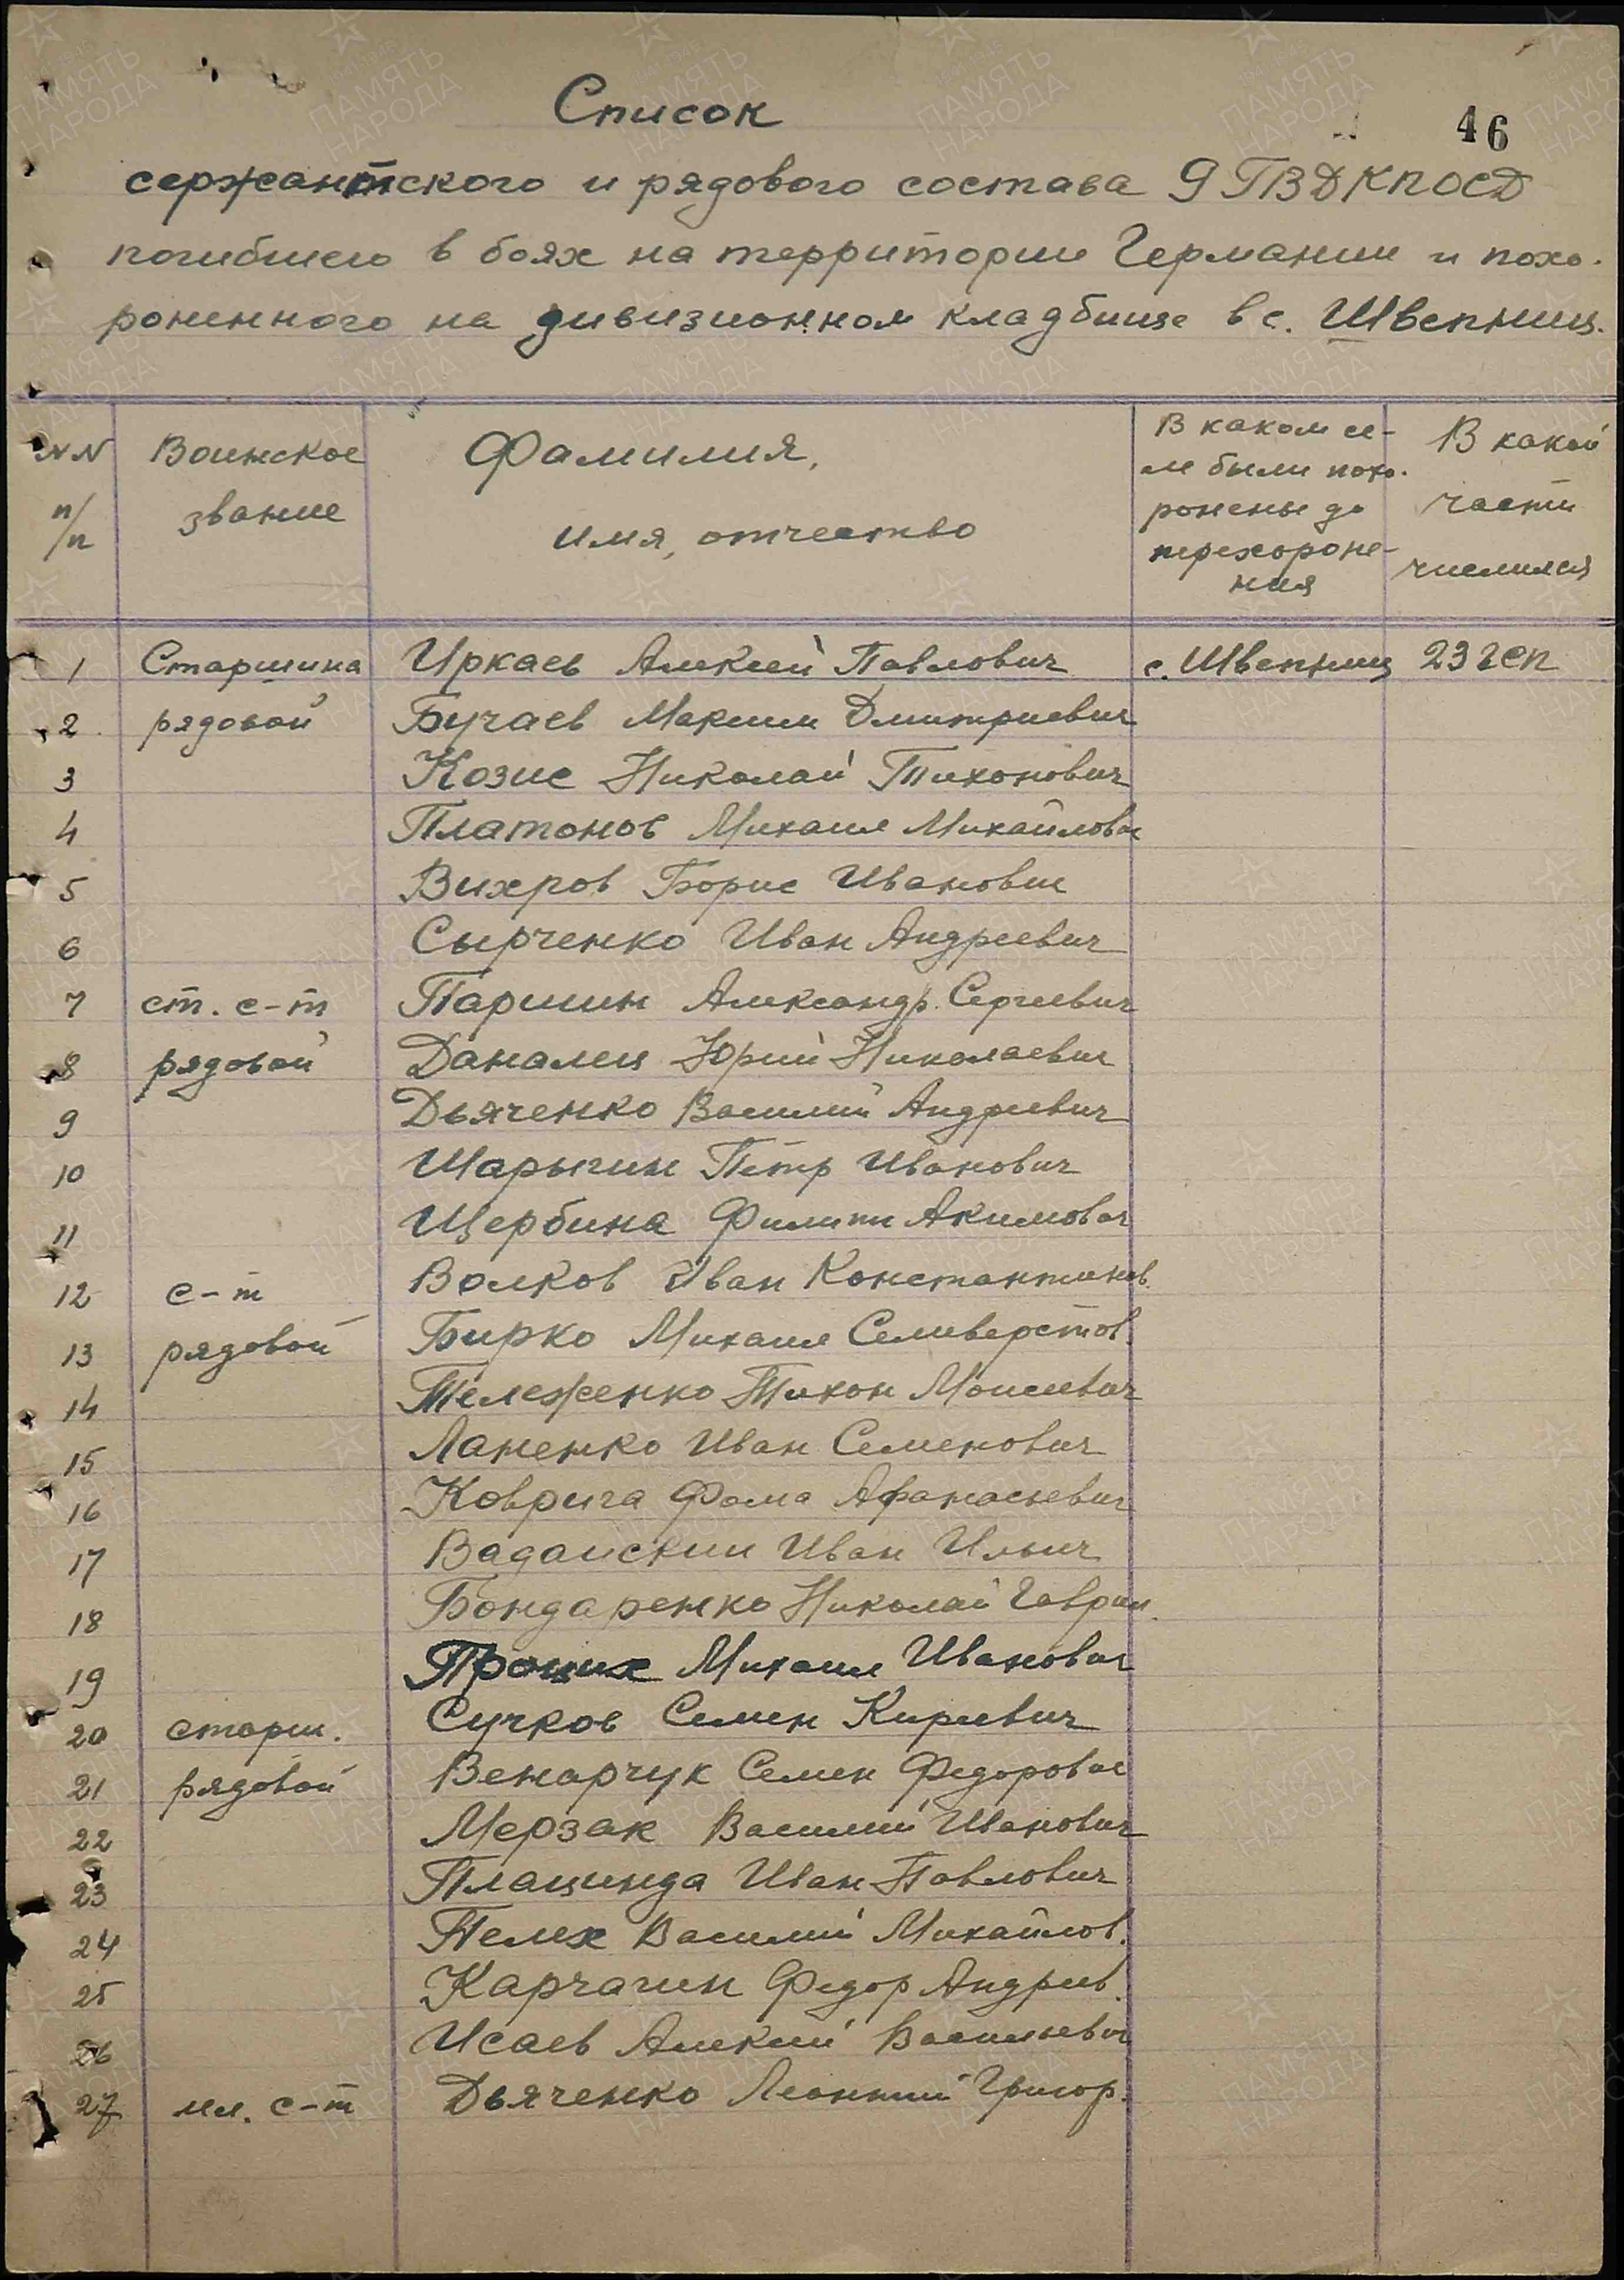 46
Список
сержантского и рядового состава 9 ГВДКПОСД
погибшего в боях на территории Германии и похо-
роненного на дивизионном кладбище в с. Швепниц.
NN п/п Воинское звание Фамилия, имя, отчество В каком се-ле были похо-ронены до перехороне-ния В какой части числился
1 Старшина Иркаев Алексей Павлович с. Швепниц 23 гсп
2 рядовой Бучаев Максим Дмитриевич
3 Козис Николай Тихонович
4 Платонов Михаил Михайлович
5 Вихров Борис Иванович
6 Сырченко Иван Андреевич
7 ст. с-т Паршин Александр Сергеевич
8 рядовой Даналец Юрий Николаевич
9 Дьяченко Василий Андреевич
10 Шарыгин Петр Иванович
11 Щербина Филипп Акимович
12 с-т Волков Иван Константинов.
13 рядовой Бирко Михаил Селиверстов.
14 Тележенко Тихон Моисеевич
15 Ланенко Иван Семенович
16 Коврига Фома Афанасьевич
17 Вадаиский Иван Ильич
18 Бондаренко Николай Гаврил.
19 Процих Михаил Иванович
20 старш. Сучков Семен Киреевич
21 рядовой Венарчук Семен Федорович
22 Мерзак Василий Иванович
23 Плащинда Иван Павлович
24 Пелех Василий Михайлов.
25 Карчагин Федор Андреев.
26 Исаев Алексей Васильевич
27 мл. с-т Дьяченко Леонтий Григор.